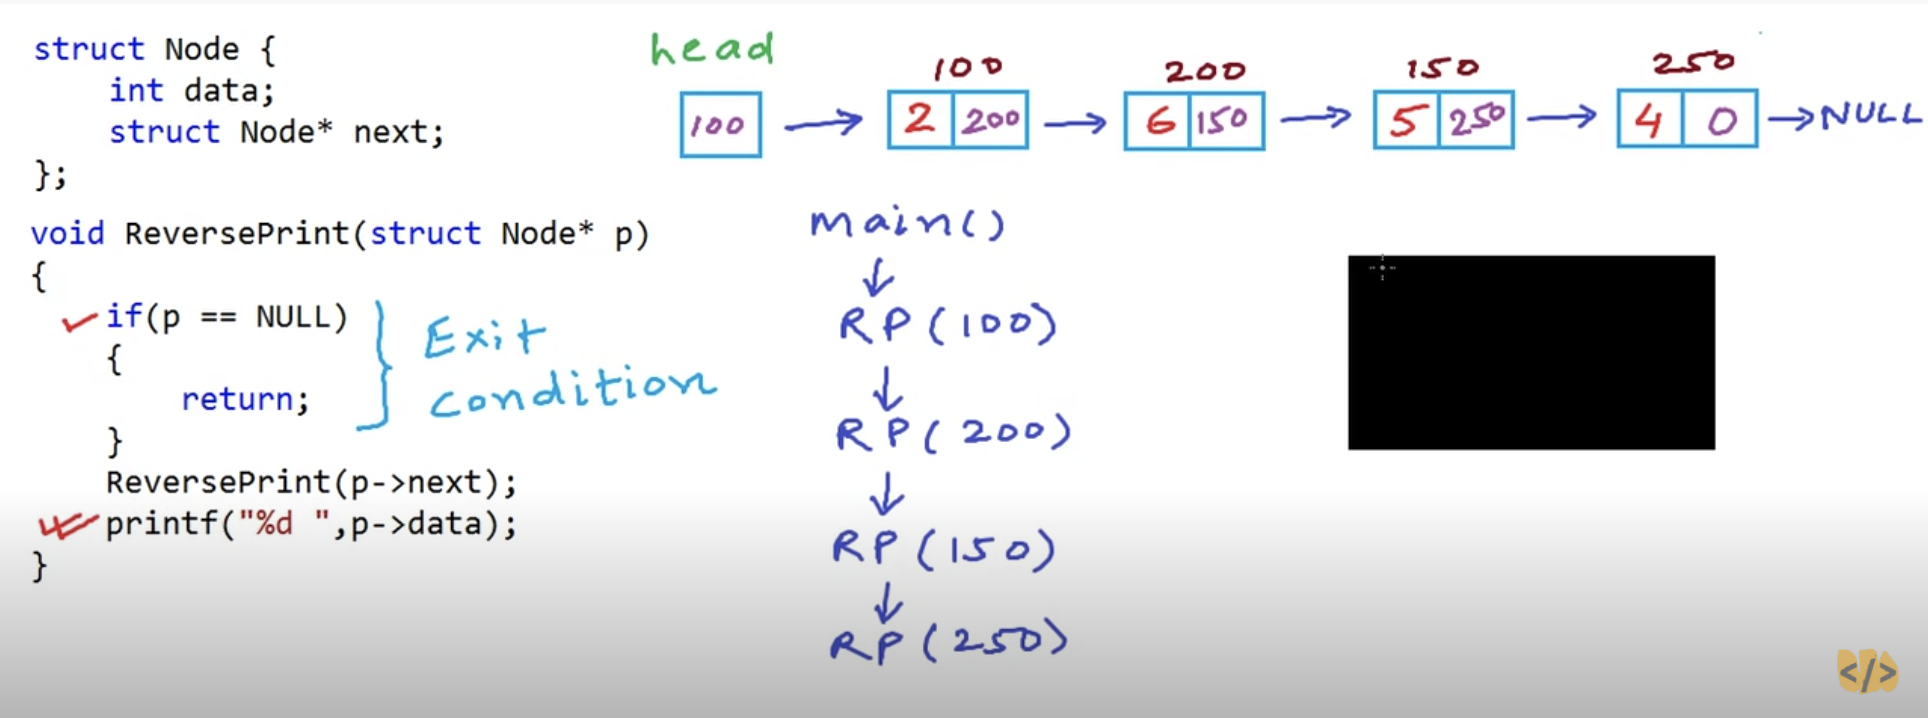 struct Node {
int data;
struct Node* next;
};
void ReversePrint(struct Node* p)
{
if(p == NULL)
{
return;
}
ReversePrint(p->next);
printf("%d ",p->data);
}
Exit
condition
head
100 200 150 250
100 2 200 6 150 5 250 4 0 NULL
main()
RP(100)
RP(200)
RP(150)
RP(250)
</>